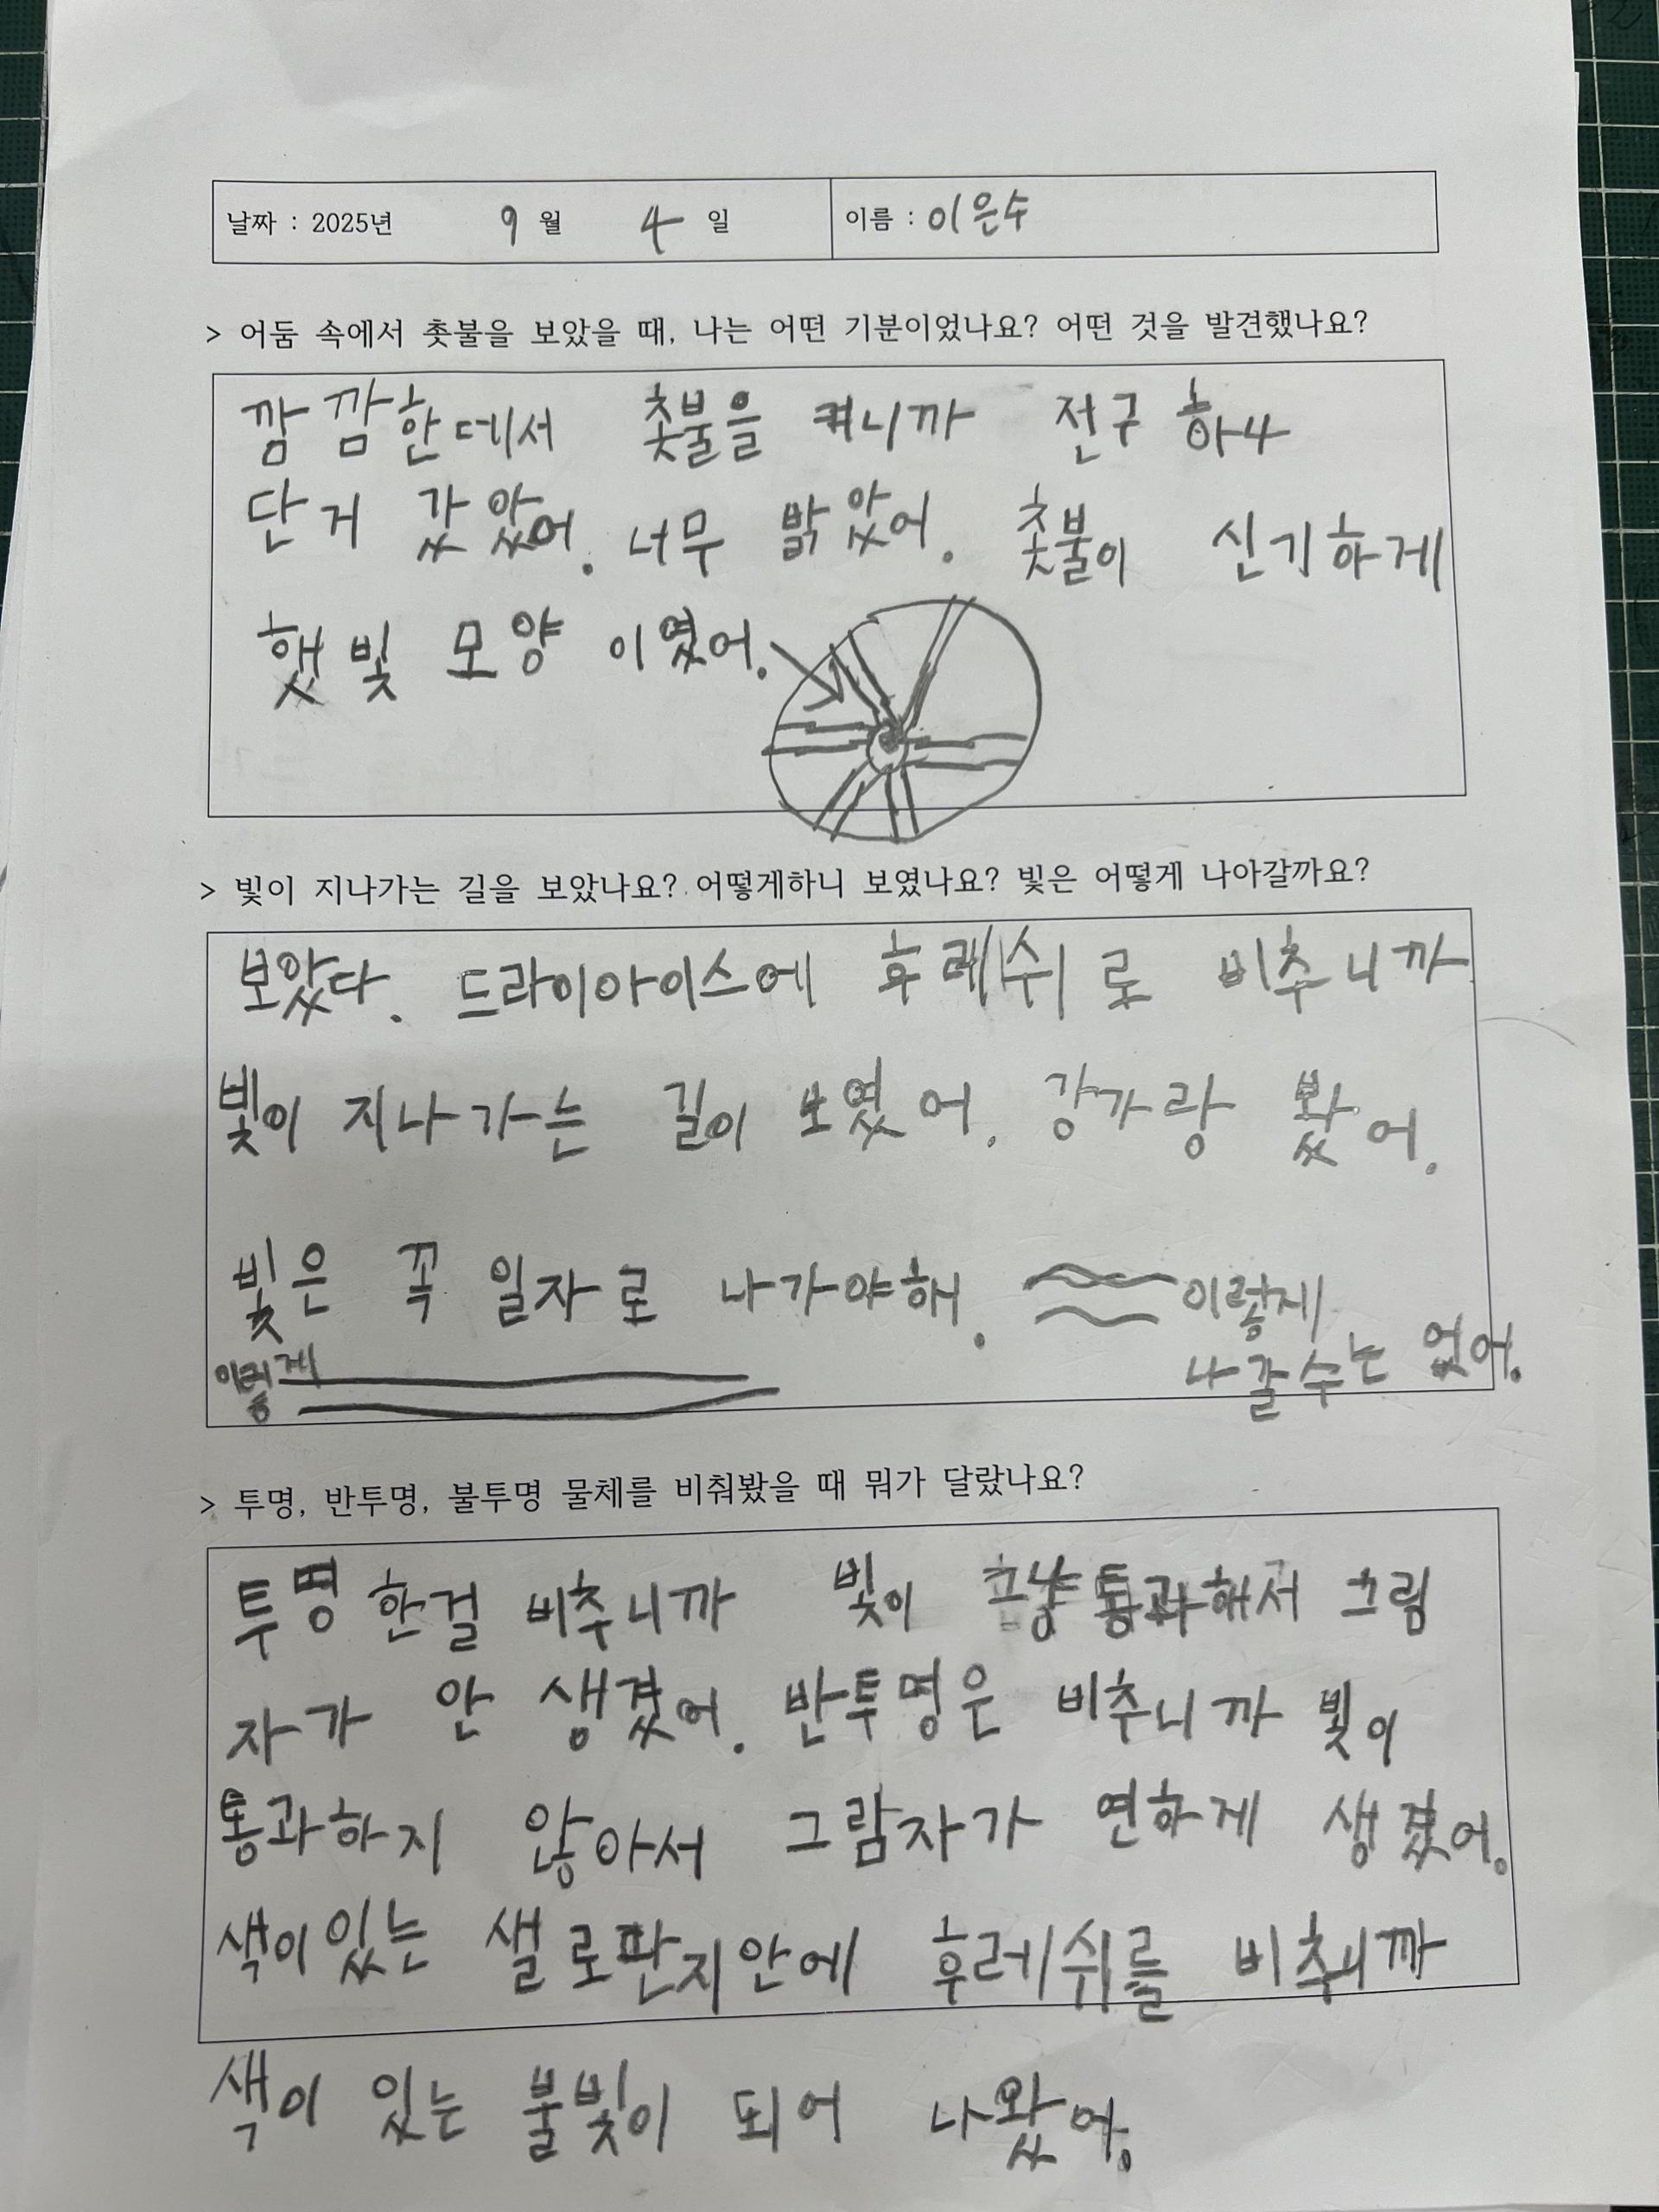 날짜 : 2025년 9 월 4 일 이름 : 이은수
> 어둠 속에서 촛불을 보았을 때, 나는 어떤 기분이었나요? 어떤 것을 발견했나요?
깜깜한데서 촛불을 켜니까 전구 하나
단거 갔았어. 너무 밝았어. 촛불이 신기하게
햇빛 모양 이였어.
> 빛이 지나가는 길을 보았나요? 어떻게하니 보였나요? 빛은 어떻게 나아갈까요?
보았다. 드라이아이스에 후레쉬로 비추니까
빛이 지나가는 길이 보였어. 강가랑 봤어.
빛은 꼭 일자로 나가야해. 이렇게
나갈수는 없어.
이렇게
> 투명, 반투명, 불투명 물체를 비춰봤을 때 뭐가 달랐나요?
투명한걸 비추니까 빛이 그냥 통과해서 그림
자가 안 생겼어. 반투명은 비추니까 빛이
통과하지 않아서 그람자가 연하게 생겼어.
색이있는 샐로판지안에 후레쉬를 비추니까
색이 있는 불빛이 되어 나왔어.